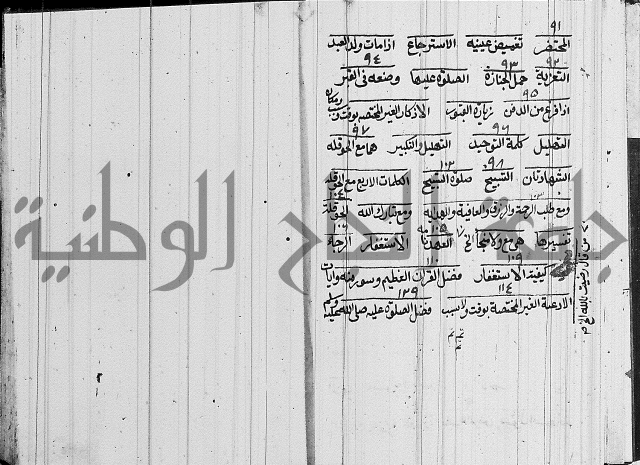 ٩١
المحتضر تغميض عينيه الاسترجاع اذا مات ولد العبد
٩٢ ٩٣ ٩٤
التعزية حمل الجنازة الصلوة عليها وضعه فى القبر
٩٥
اذا فرغ من الدفن زيارة القبور الاذكار الغير المختصة بوقت وسبب ومكان
٩٦ ٩٧
التهليل كلمة التوحيد التهليل والتكبير هما مع الحوقلة
٩٨ ١٠٢
الشهادتان التسبيح صلوة التسبيح الكلمات الاربع مع الحوقلة
١٠٣ ١٠٤
ومع طلب الرحمة والرزق والعافية والهداية ومع تبارك الله الحوقلة
١٠٥ ١٠٦
تفسيرها هى مع ولا منجا الخ الاستغفار
١٠٩
كيفية الاستغفار فضل القران العظيم وسور منه وآيات
١١٤ ١٢٩
الادعية الغير المختصة بوقت ولا سبب فضل الصلوة عليه صلى الله عليه وسلم
تم
من قال رضيت بالله الخ
جامعة الوطنية